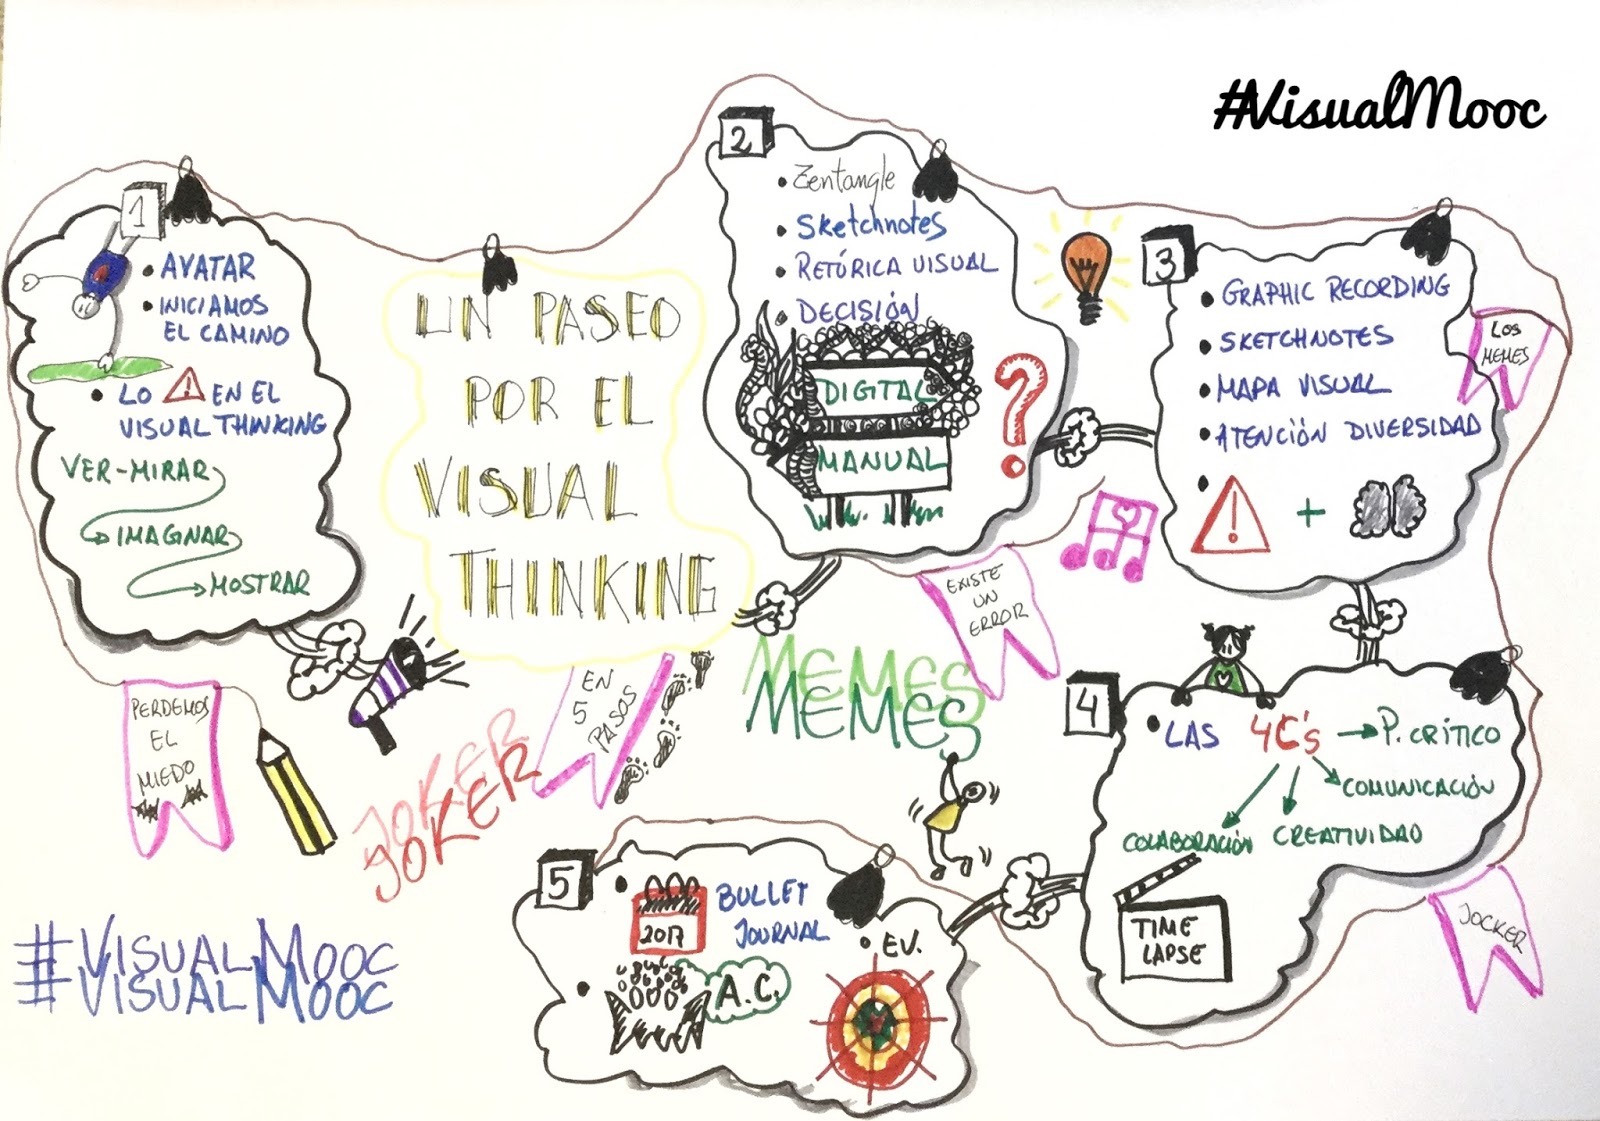 #VisualMooc
1
• AVATAR
• INICIAMOS
EL CAMINO
• LO ⚠ EN EL
VISUAL THINKING
VER-MIRAR
IMAGINAR
MOSTRAR
UN PASEO
POR EL
VISUAL
THINKING
EN
5
PASOS
2
• Zentangle
• Sketchnotes
• RETÓRICA VISUAL
• DECISIÓN
DIGITAL
MANUAL
?
3
• GRAPHIC RECORDING
• SKETCHNOTES
• MAPA VISUAL
• ATENCIÓN DIVERSIDAD
• ⚠ +
LOS
MEMES
EXISTE
UN
ERROR
PERDEMOS
EL
MIEDO
JOKER
JOKER
MEMES
MEMES
4
• LAS 4C's → P. CRÍTICO
COMUNICACIÓN
COLABORACIÓN CREATIVIDAD
TIME
LAPSE
JOCKER
5
• 2017 BULLET
JOURNAL
• A.C.
• EV.
#VISUALMOOC
#VISUALMOOC